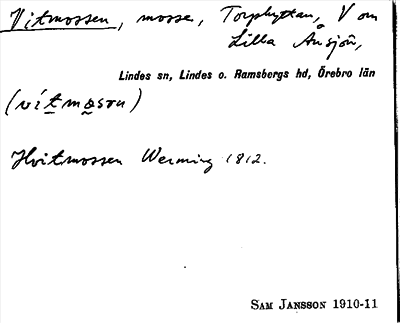 Vitmossen, mosse, Torphyttan, V om
Lilla Ånsjön,
Lindes sn, Lindes o. Ramsbergs hd, Örebro län
(vítmɷsɷn)
Hvitmossen Werming 1812.
SAM JANSSON 1910-11